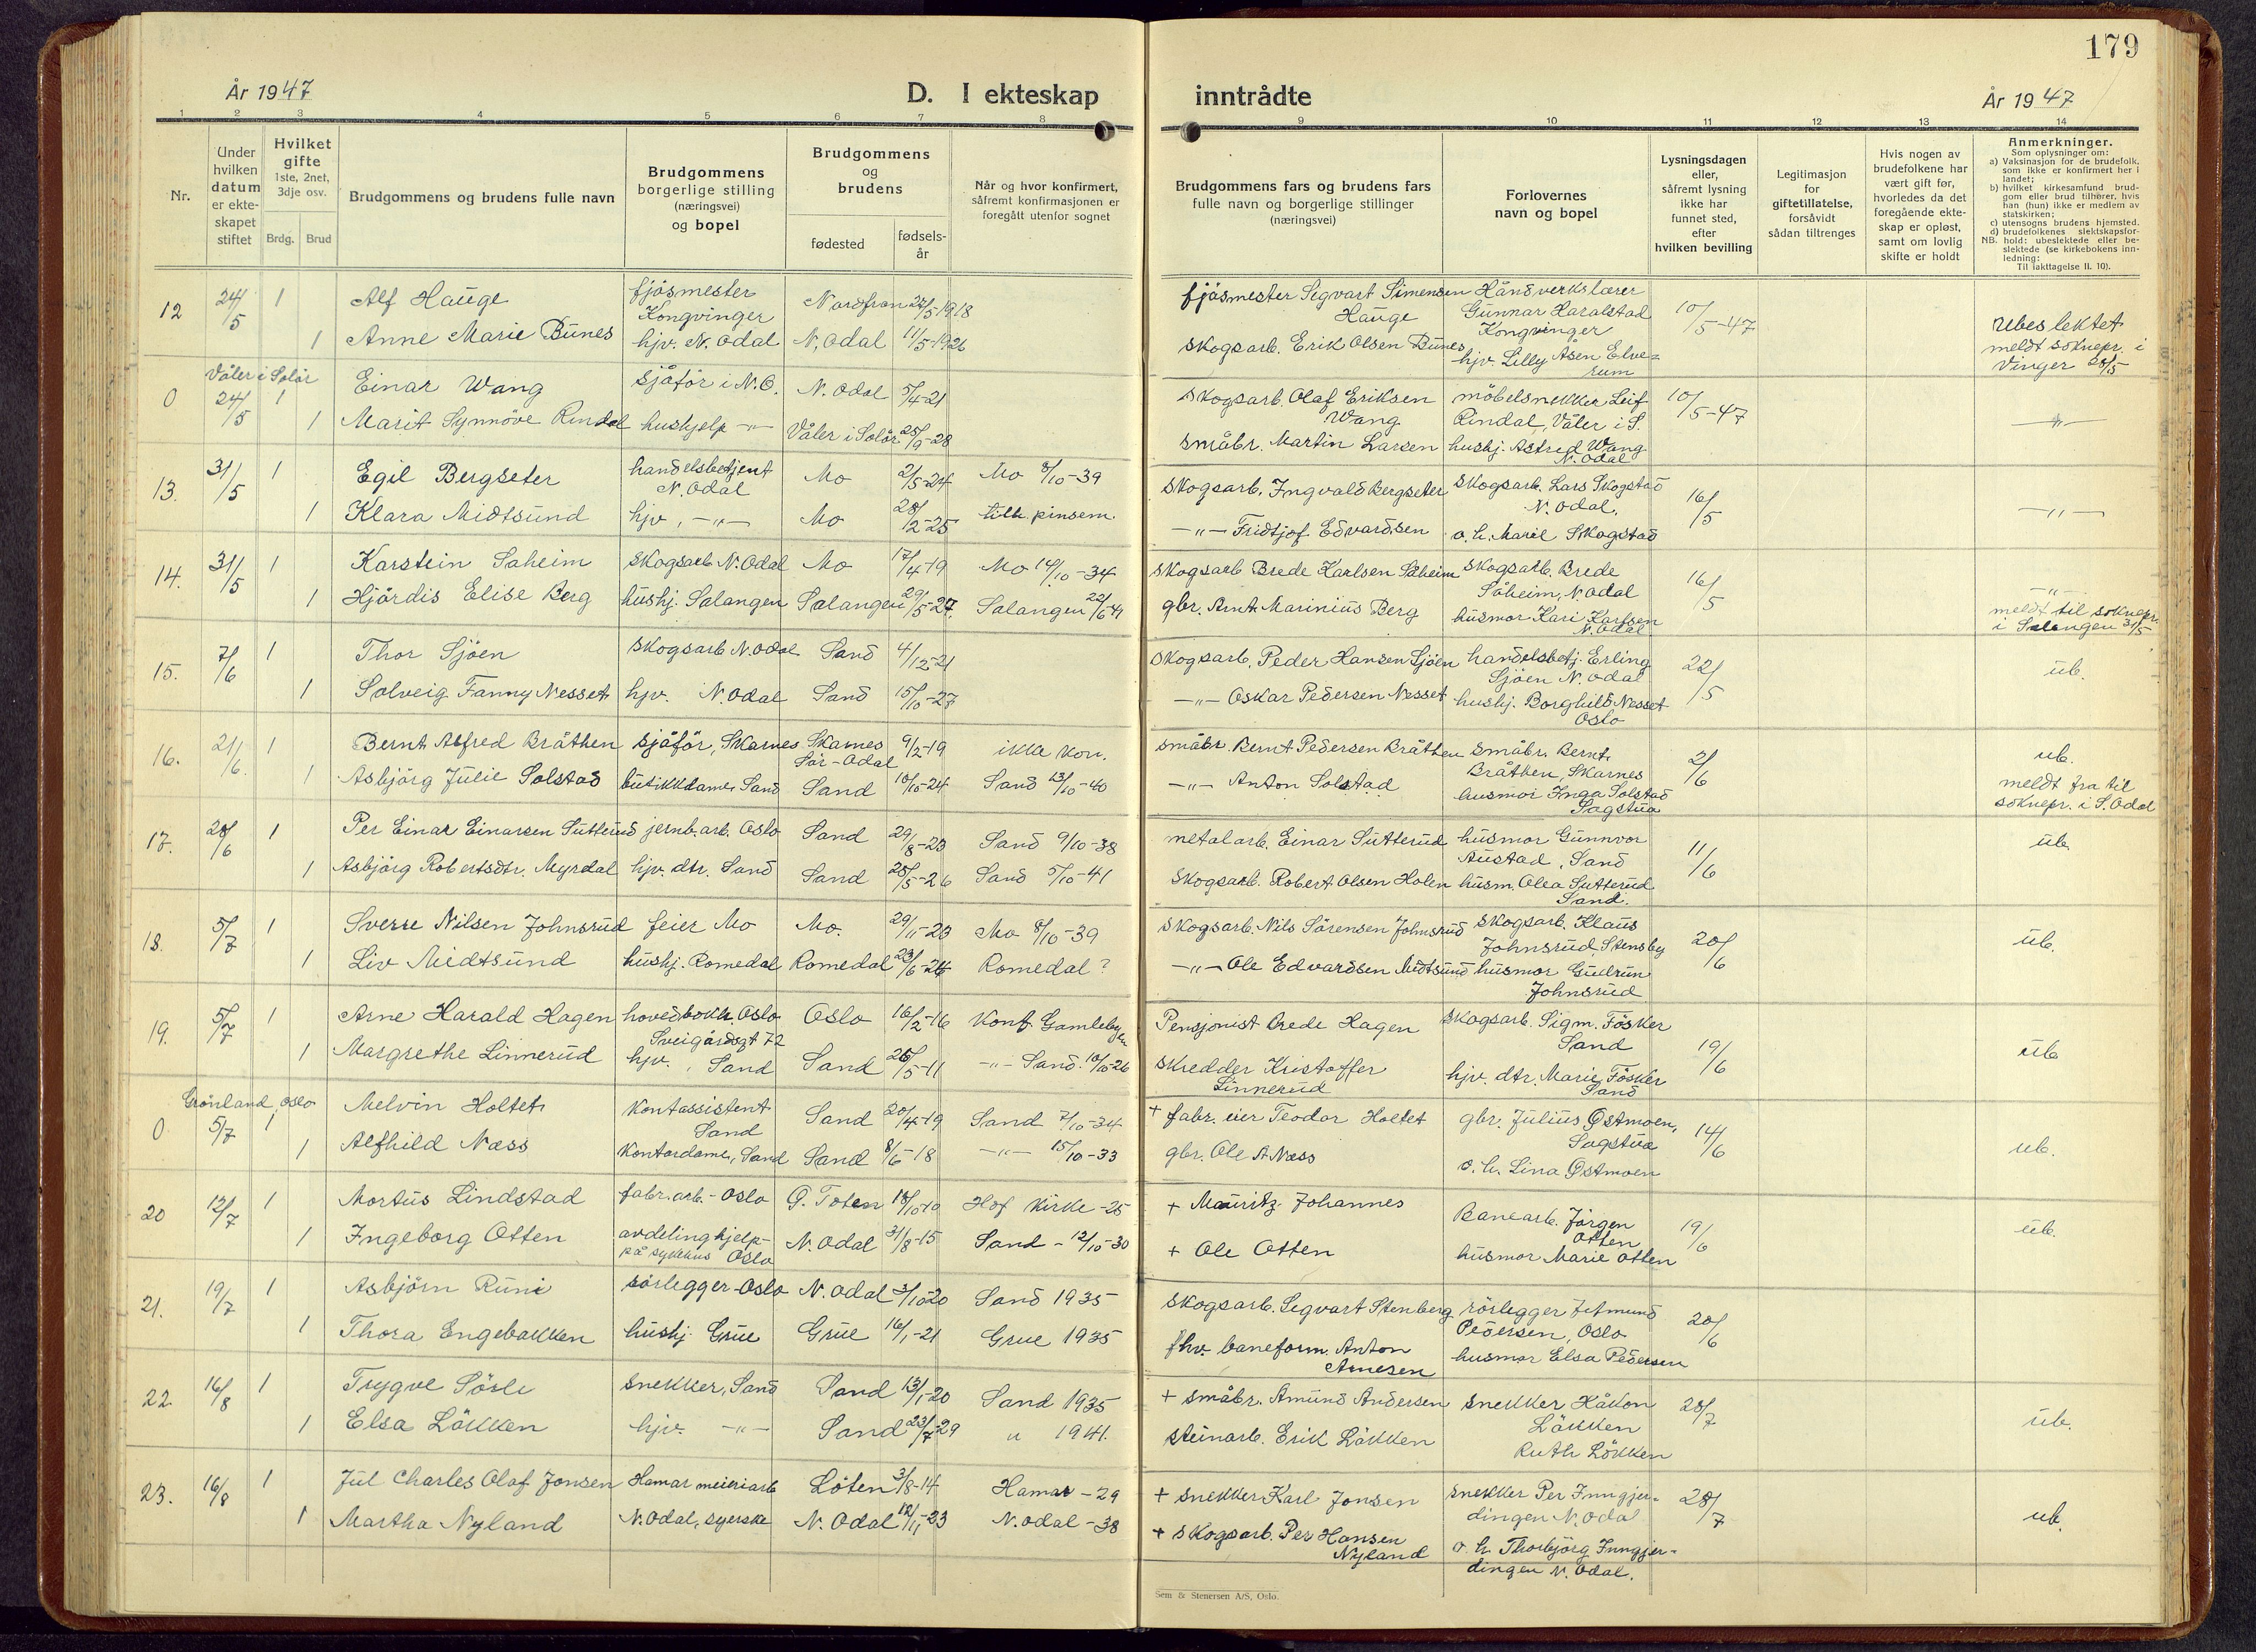 179
År 1947
D. I ekteskap
inntrådte
År 1947
1 2 3 4 5 6 7 8 9 10 11 12 13 14
Nr.
Under hvilken datum er ekteskapet stiftet
Hvilket gifte 1ste, 2net, 3dje osv.
Brdg. Brud
Brudgommens og brudens fulle navn
Brudgommens borgerlige stilling (næringsvei) og bopel
Brudgommens og brudens
fødested
fødsels-år
Når og hvor konfirmert, såfremt konfirmasjonen er foregått utenfor sognet
Brudgommens fars og brudens fars fulle navn og borgerlige stillinger (næringsvei)
Forlovernes navn og bopel
Lysningsdagen eller, såfremt lysning ikke har funnet sted, efter hvilken bevilling
Legitimasjon for giftetillatelse, forsåvidt sådan tiltrenges
Hvis nogen av brudefolkene har vært gift før, hvorledes da det foregående ekteskap er opløst, samt om lovlig skifte er holdt
Anmerkninger.
Som oplysninger om:
a) Vaksinasjon for de brudefolk, som ikke er konfirmert her i landet;
b) hvilket kirkesamfund brudgom eller brud tilhører, hvis han (hun) ikke er medlem av statskirken;
c) utensogns brudens hjemsted.
d) brudefolkenes slektskapsforhold: ubeslektede eller beslektede (se kirkebokens innledning:
NB.
Til iakttagelse II. 10).
12 24/5 1 Alf Hauge fjösmester Kongvinger Nordfran 27/5-1918
1 Anne Marie Bunes hjv. N. Odal N. Odal 11/5-1926
fjösmester Segvart Simensen Hauge
skogsarb. Erik Olsen Bunes
Håndverkslærer Gunnar Haralstad Kongvinger
hjv. Lilly Åsen Elverum
10/5-47
ubeslektet
meldt soknepr. i Vinger 28/5
Våler i Solör
0 24/5 1 Einar Wang sjåför i N.O. N. Odal 5/4-21
1 Marit Synnöve Rindal hushjelp -"- Våler i Solör 25/9-28
skogsarb. Olaf Eriksen Wang
småbr. Martin Larsen
möbelsnekker Leif Rindal, Våler i S.
hushj. Astrid Wang N. Odal
10/5-47
-"-
13. 31/5 1 Egil Bergseter handelsbetjent N. Odal Mo 2/5-24 Mo 8/10-39
1 Klara Midtsund hjv, -"- Mo 28/12-25 tilh. pinsem.
skogsarb. Ingvald Bergseter
-"- Fridtjof Edvardsen
skogsarb. Lars Skogstad N. Odal.
o. h. Marie Skogstad
16/5
-"-
14. 31/5 1 Karstein Saheim skogsarb N. Odal Mo 17/4-19 Mo 14/10-34
1 Hjördis Elise Berg hushj. Salangen Salangen 29/5-27. Salangen 22/6-41
skogsarb Brede Karlsen Saheim
gbr. Arnt Marinius Berg
skogsarb. Brede Såheim, N. Odal
husmor Kari Karlsen N. Odal
16/5
-"-
meldt til soknepr. i Salangen 31/5
15. 7/6 1 Thor Sjöen skogsarb N. Odal Sand 4/12-21
1 Solveig Fanny Nesset hjv. N. Odal Sand 15/10-27
skogsarb. Peder Hansen Sjöen
-"- Oskar Pedersen Nesset
handelsbetj. Erling Sjöen N. Odal
hushj. Borghild Nesset Oslo
22/5
ub.
16. 21/6. 1 Bernt Alfred Bråthen sjåför, Skarnes Skarnes Sör-Odal 9/2-19 ikke kon.
1 Asbjörg Julie Solstad butikkdame, Sand Sand 10/10-24 Sand 13/10-40
småbr. Bernt Pedersen Bråthen
-"- Anton Solstad
småbr. Bernt. Bråthen, Skarnes
husmor Inga Solstad Sagstua
2/6
ub.
meldt fra til soknepr. i S. Odal
17. 28/6 1 Per Einar Einarsen Sutterud jernb. arb. Oslo Sand 29/8-23 Sand 9/10-38
1 Asbjörg Robertsdtr. Myrdal hjv. dtr. Sand Sand 28/5-26 Sand 5/10-41
metalarb. Einar Sutterud
skogsarb. Robert Olsen Holen
husmor Gunnvor Austad, Sand
husm. Olea Sutterud Sand.
11/6
ub.
18. 5/7 1 Sverre Nilsen Johnsrud feier Mo Mo. 29/11-23 Mo 8/10-39
1 Liv Midtsund hushj. Romedal Romedal 23/6-24 Romedal?
skogsarb. Nils Sörensen Johnsrud
-"- Ole Edvardsen Midtsund
skogsarb. Klaus Johnsrud, Stensby
husmor Gudrun Johnsrud
20/6
ub.
19. 5/7 1 Arne Harald Hagen hovedbokh. Oslo Sveigårdsgt 72 Oslo 16/2-16 Konf. Gamlebyen
1 Margrethe Linnerud hjv., Sand Sand 26/5-11 -"- Sand. 10/10-26
Pensjonist Brede Hagen
skredder Kristoffer Linnerud
skogsarb. Sigm. Fösker Sand
hjv. dtr. Marie Fösker Sand
19/6
ub
Grönland, Oslo
0 5/7 1 Melvin Holtet Kontassistent Sand Sand 20/4-19 Sand 7/10-34
1 Alfhild Næss Kontordame, Sand Sand 8/6-18 -"- 15/10-33
+ fabr. eier Teodor Holtet
gbr. Ole A Næss
gbr. Julius Østmoen, Sagstua
o. h. Lina Østmoen
14/6
ub.
20 12/7 1 Mortus Lindstad fabr. arb. - Oslo Ö. Toten 18/10-10 Hof kirke -25
1 Ingeborg Otten avdelinghjelp- på sykehus Oslo N. Odal 31/8-15 Sand - 12/10-30
+ Mauritz Johannes
+ Ole Otten
Banearb. Jörgen Otten
husmor Marie Otten
19/6
ub.
21. 19/7 1 Asbjörn Runi rörlegger-Oslo N. Odal 3/10-20 Sand 1935
1 Thora Engebakken hushj. Grue Grue 16/1-21 Grue 1935
skogsarb. Segvart Stenberg
fhv. baneform. Anton Arnesen
rörlegger Jetmund Pedersen, Oslo
husmor Elsa Pedersen
20/6
22 16/8 1 Trygve Sörli snekker, Sand Sand 13/1-20 Sand 1935
1 Elsa Lökken hjv. -"- Sand 23/7-29 " 1941.
+ småbr. Amund Andersen
steinarb. Erik Lökken
snekker Håkon Lökken
Ruth Lökken
28/7
ub.
23. 16/8 1 Jul Charles Olaf Jonsen Hamar meieriarb Löten 3/8-14 Hamar -29
1 Martha Nyland N. Odal, syerske N. Odal 12/11-23 N. Odal -38
+ snekker Karl Jonsen
+ skogsarb. Per Hansen Nyland
snekker Per Inngjerdingen N. Odal
o. h. Thorbjörg Inngjerdingen N. Odal.
28/7
ub.
Sem & Stenersen A/S, Oslo.